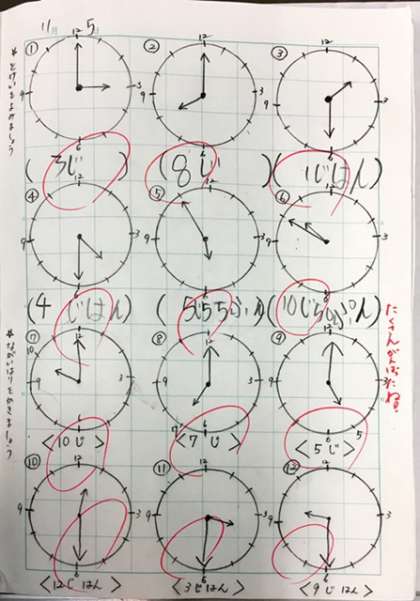 11月 5
*とけいをよみましょう
① ② ③
12 12 12
9 3 9 3 9 3
6 6 6
(3じ) (8じ) (1じはん)
④ ⑤ ⑥
12 12 12
9 3 9 3 9 3
6 6 6
(4じはん) (5じ55ぷん) (10じ50ぷん)
たくさんがんばったね!
*ながいはりをかきましょう
⑦ ⑧ ⑨
12 12 12
10 9 3 9 3 9 3
6 7 6 6 5
<10じ> <7じ> <5じ>
⑩ ⑪ ⑫
12 12 12
9 3 9 3 9 3
6 6 6
<12じはん> <3じはん> <9じはん>